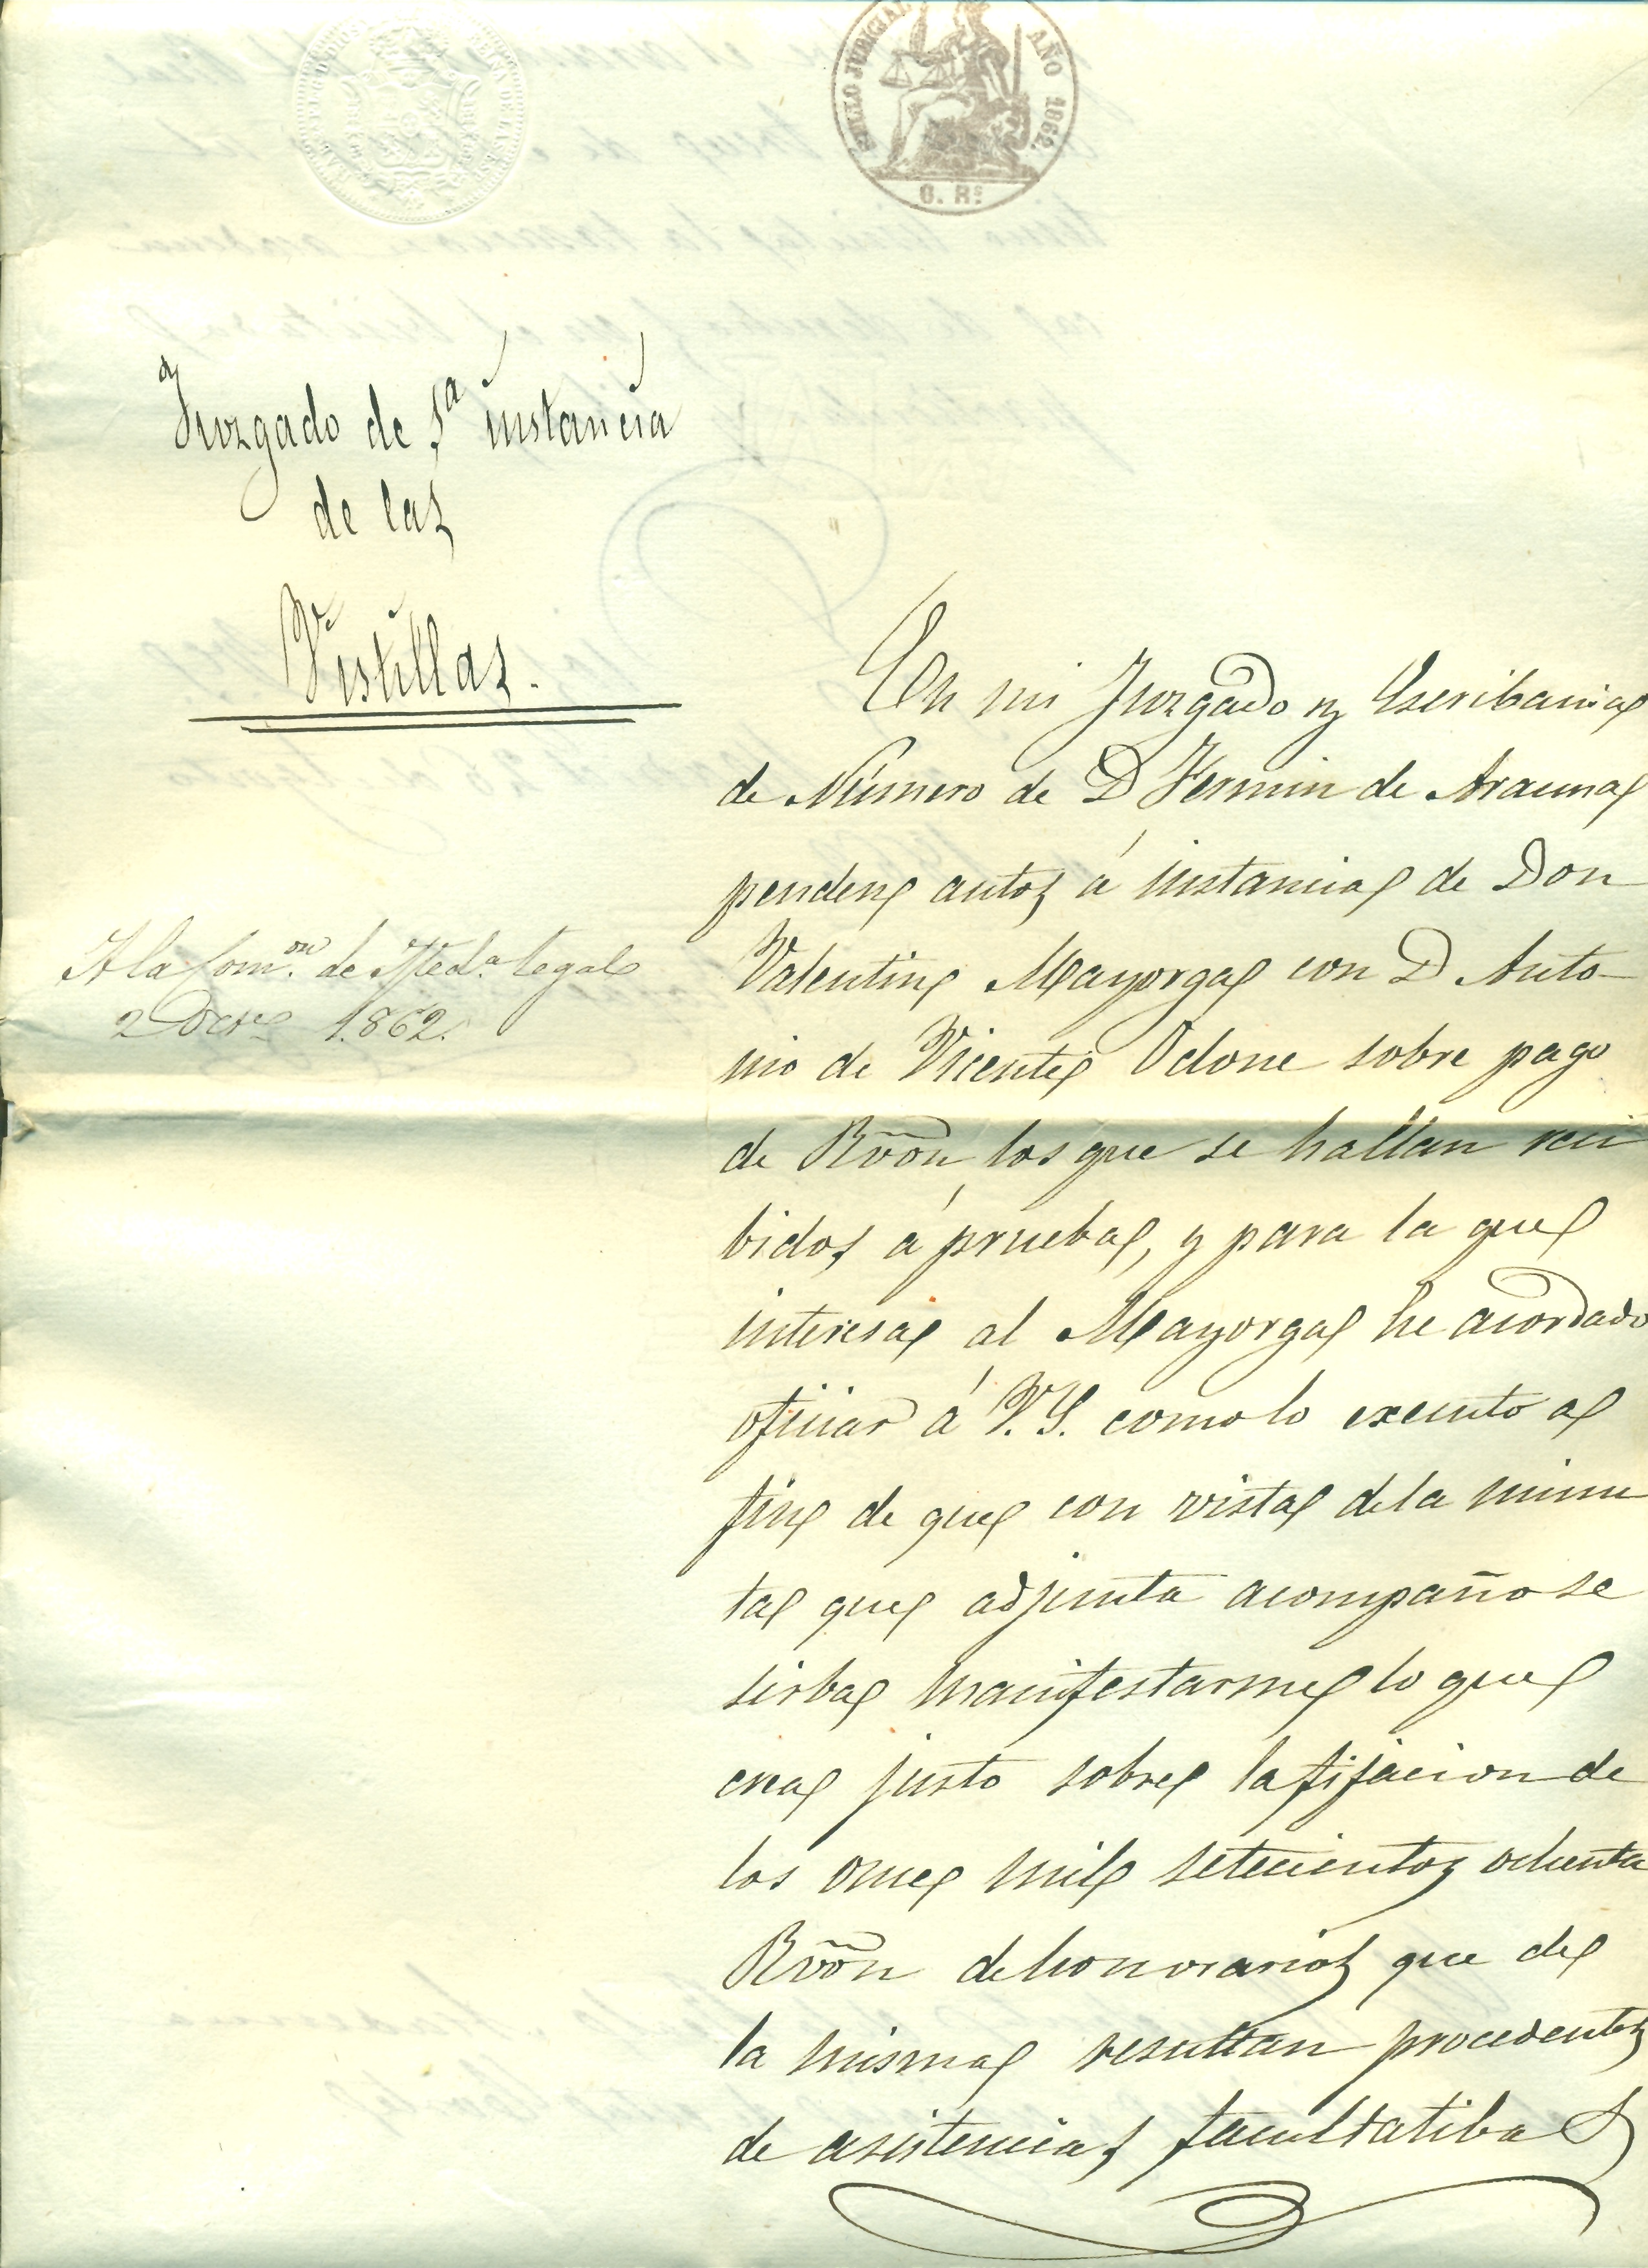 SELLO JUDICIAL
AÑO 1862.
6. Rs
Juzgado de 1ª instancia
de las
Vistillas.
A la Comon. de Meda. legal
2 Dcre 1862.
En mi Juzgado y Escribania
de Número de D Fermin de Arauna
penden autos á instancia de Don
Valentin Mayorga con D Anto-
nio de Vicente Odone sobre pago
de Rvõn, los que se hallan reci
bidos á prueba, y para la que
interesa al Mayorga he acordado
oficiar á V.S. como lo executo a
fin de que con vista de la minu
ta que adjunta acompaño se
sirba manifestarme lo que
crea justo sobre la fijacion de
los once mil setecientos ochenta
Rvõn de honorarios que de
la misma resultan procedentes
de asistencias facultatibas